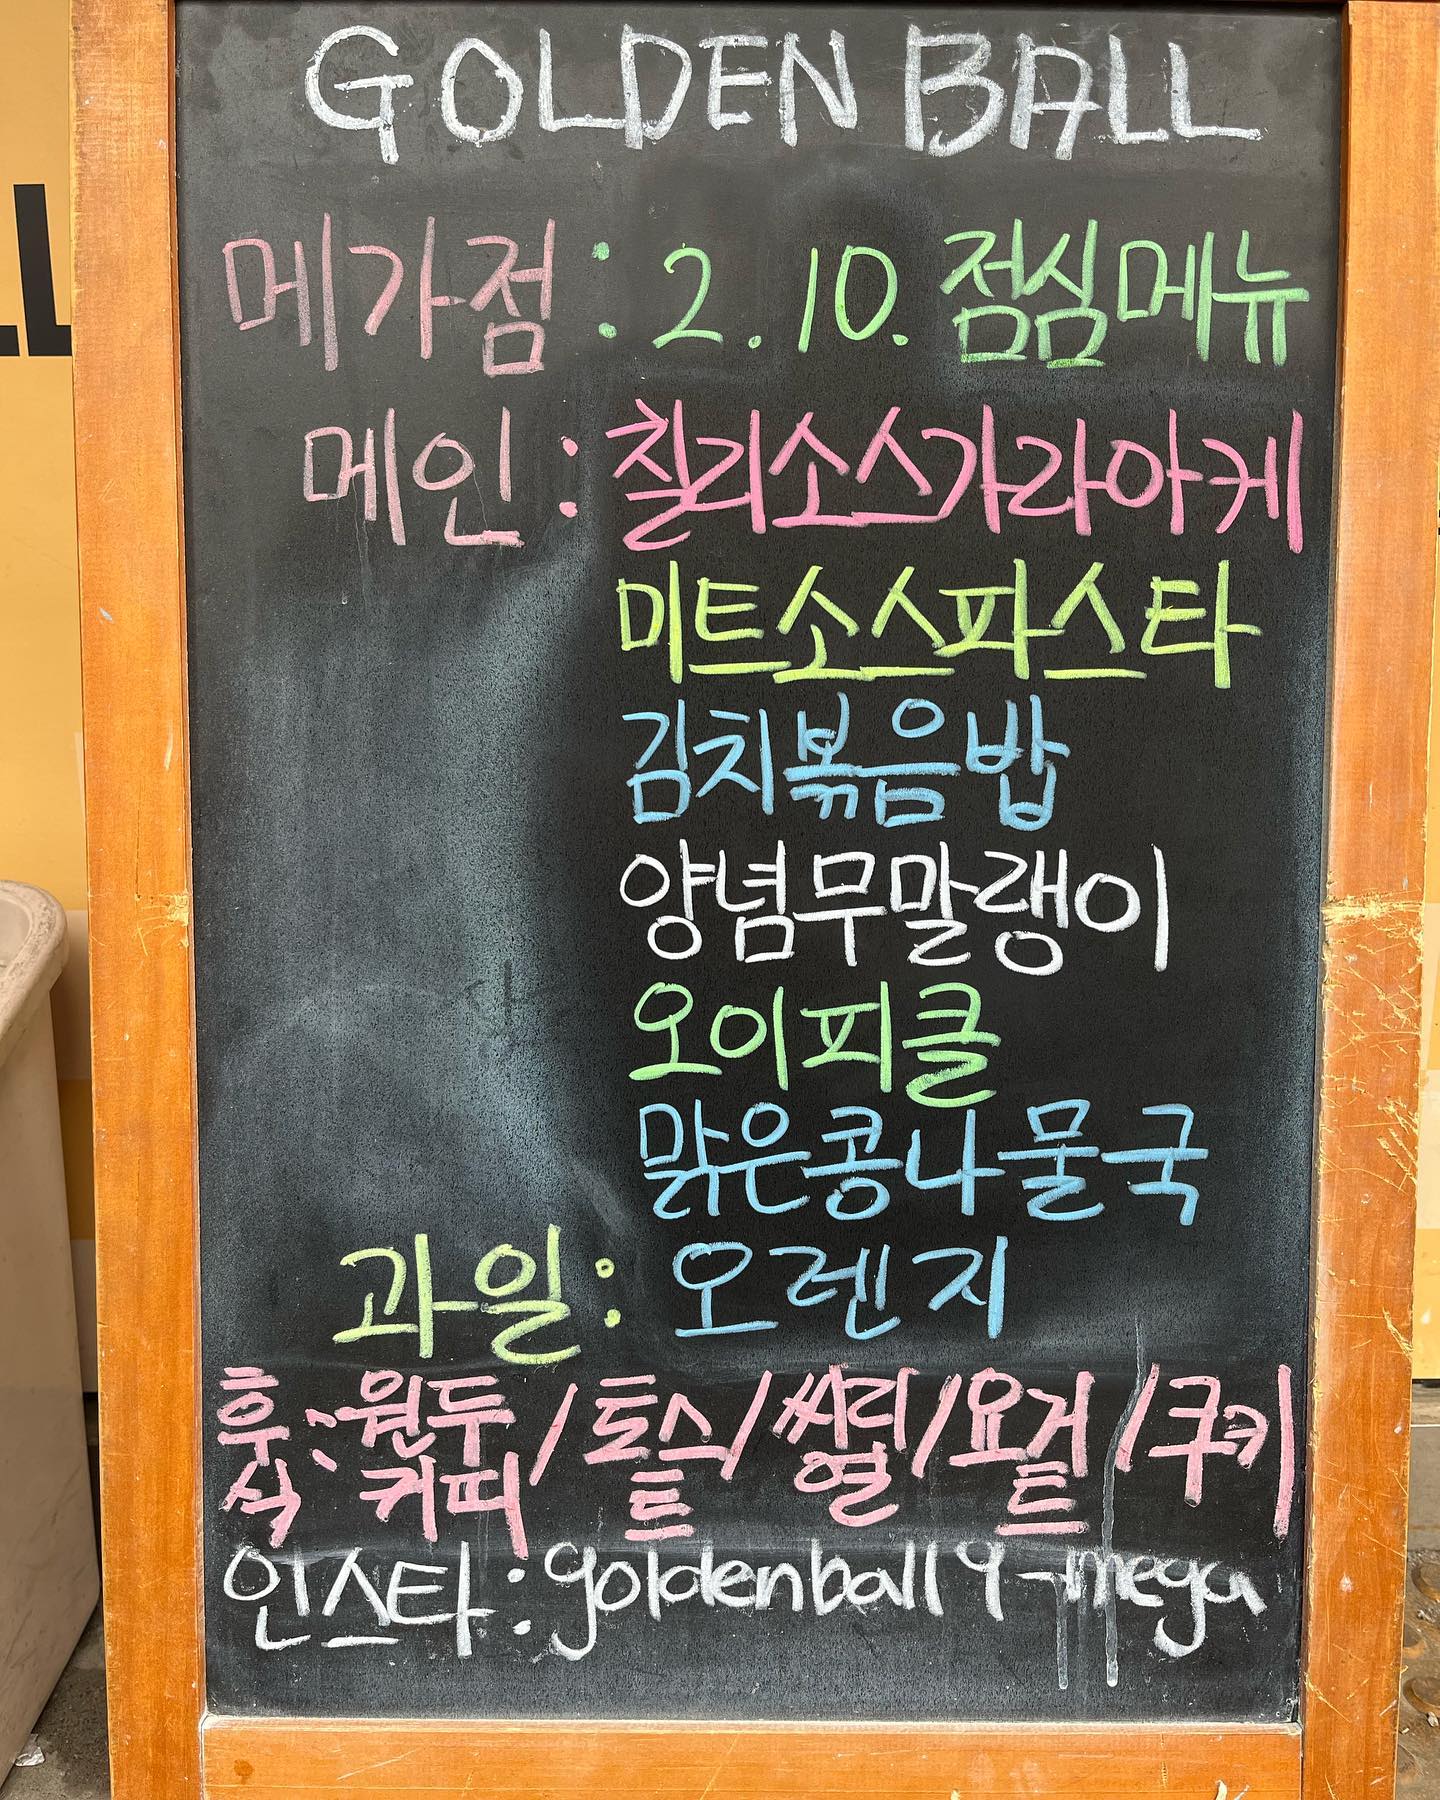 GOLDEN BALL
메가점 : 2. 10. 점심메뉴
메인 : 칠리소스가라아케
미트소스파스타
김치볶음밥
양념무말랭이
오이피클
맑은콩나물국
과일: 오렌지
후식: 원두커피 / 토스트 / 씨리열 / 요거트 / 쿠키
인스타 : goldenball9_mega